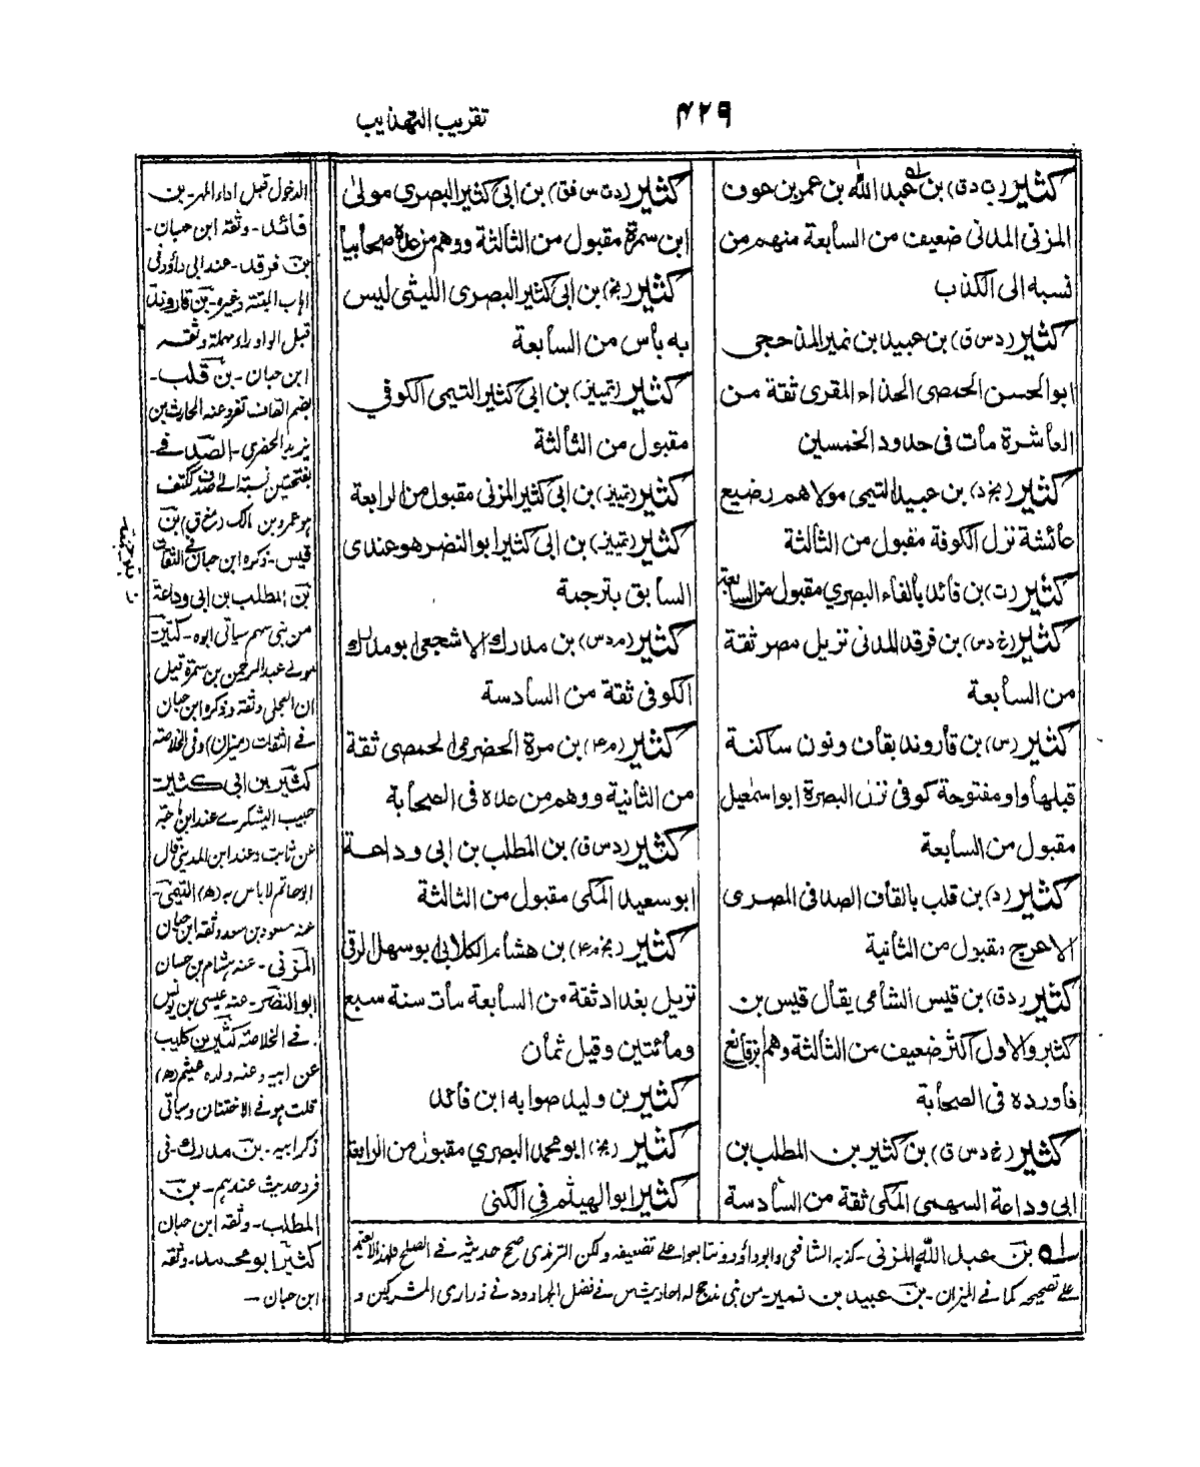 ۴۲۹
تقريب التهذيب
كثير (ر ت دق) بن عبد الله بن عمرو بن عوف
المزنى المدنى ضعيف من السابعة منهم من
نسبه الى الكذب
كثير (د س ق) بن عبيد بن نمير المذحجى
ابو الحسن الحمصى الحذاء المقرى ثقة من
العاشرة مات فى حدود الخمسين
كثير (بخ د) بن عبيد التيمى مولاهم رضيع
عائشة نزل الكوفة مقبول من الثالثة
كثير (ت) بن فائد بالفاء البصري مقبول من السابعة
كثير (غ د س) بن فرقد المدنى نزيل مصر ثقة
من السابعة
كثير (س) بن قاروند بقاف ونون ساكنة
قبلها واو مفتوحة كوفى نزل البصرة ابو اسمعيل
مقبول من السابعة
كثير (د) بن قلب بالقاف الصدفى المصرى
الاعرج مقبول من الثانية
كثير (دق) بن قيس الشامى يقال قيس بن
كثير والاول اكثر ضعيف من الثالثة وهم ابن قانع
فاورده فى الصحابة
كثير (خ د س ق) بن كثير بن المطلب بن
ابى وداعة السهمى المكى ثقة من السادسة
كثير (د ت س فق) بن ابى كثير البصرى مولى
ابن سمرة مقبول من الثالثة ووهم من عده صحابيا
كثير (بخ) بن ابى كثير البصرى الليثى ليس
به بأس من السابعة
كثير (تمييز) بن ابى كثير التيمى الكوفي
مقبول من الثالثة
كثير (تمييز) بن ابى كثير المزنى مقبول من الرابعة
كثير (تمييز) بن ابى كثير ابو النضر هو عندى
السابق بترجمة
كثير (مد س) بن مدرك الاشجعى ابو مدرك
الكوفى ثقة من السادسة
كثير (م۴) بن مرة الحضرمى الحمصى ثقة
من الثانية ووهم من عده فى الصحابة
كثير (د س ق) بن المطلب بن ابى وداعة
ابو سعيد المكى مقبول من الثالثة
كثير (بخ م۴) بن هشام الكلابى ابو سهل الرقى
نزيل بغداد ثقة من السابعة مات سنة سبع
ومائتين وقيل ثمان
كثير بن وليد صوابه ابن فائد
كثير (بخ) ابو محمد البصري مقبول من الرابعة
كثير ابو الهيثم فى الكنى
له بن عبد الله المزنى - كذبه الشافعى وابوداؤد وتتابعوا على تضعيفه ولكن الترمذى صح حديثه فے الصلح فلهذا لا يعتمد
علے تصحيحه كما فے الميزان - بن عبيد بن نمير من بنى مذحج له احاديث س نے فضل الجهاد ود نے ذرارى المشركين و
الدخول قبل اداء المهر - بن
فائد - وثقه ابن حبان -
بن فرقد - عند ابى داؤد فى
قبل الواو راء مهملة وثقه
ابن حبان - بن قلب -
بضم القاف تفرد عنه الحارث بن
يزيد الحضرمي - الصدفے -
بفتحتين نسبة الى صدف ككتف
هو عمرو بن مالك (مغ ق) بن
قيس - ذكره ابن حبان فى الثقات
بن المطلب بن ابى وداعة
من بنى سهم سياتى ابوه - كثير
مولے عبد الرحمن بن سمرة قيل
ان العجلى وثقه وذكره ابن حبان
فے الثقات (ميزان) وفى الخلاصة
كثير بن ابى كثير
حبيب اليشكرے عند ابن ماجة
عن ثابت وعند ابن المدينى قال
ابو حاتم لا باس به (ه) التيمى -
عنه مسعود بن سعد وثقه ابن حبان
المزنى - عنه هشام بن حسان
ابو النضر - عنه عيسى بن يونس
فے الخلاصة كثير بن كليب
عن ابيه وعنه ولده عيثم (ه)
قلت هو فے الاختتان وسياتى
ذكر ابيه - بن مدرك - فى
فرد حديث عندهم - بن
المطلب - وثقه ابن حبان
كثير ابو محمد - وثقه
ابن حبان -